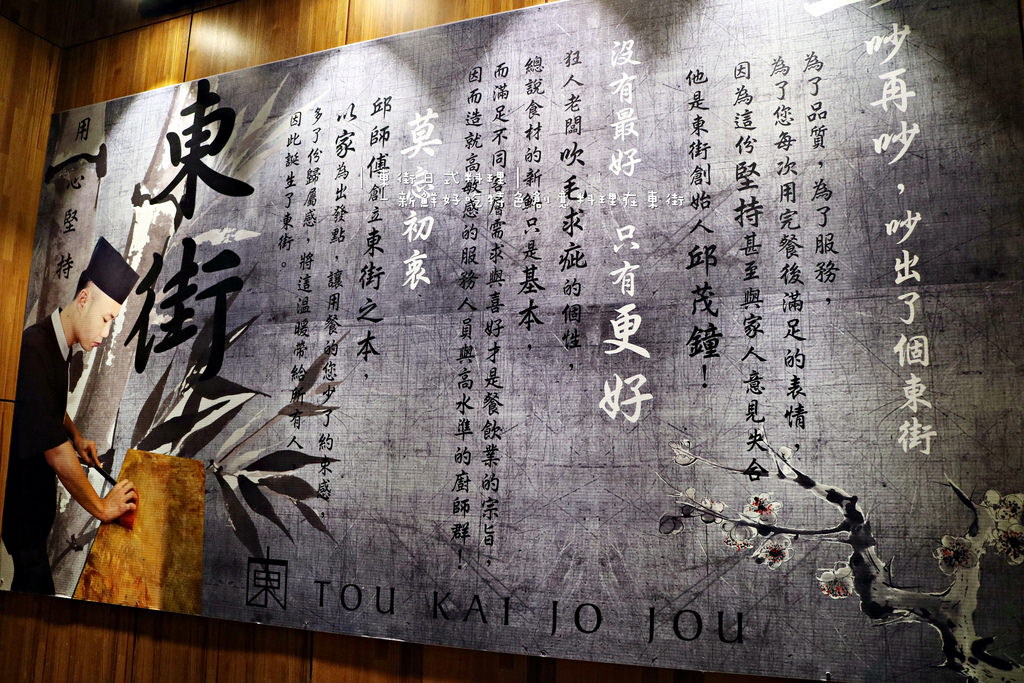 一吵再吵，吵出了個東街
為了品質，為了服務，
為了您每次用完餐後滿足的表情，
因為這份堅持甚至與家人意見失合
他是東街創始人邱茂鐘！
沒有最好 只有更好
狂人老闆吹毛求疵的個性，
總說食材的新鮮只是基本，
而滿足不同客層需求與喜好才是餐飲業的宗旨，
因而造就高敏感的服務人員與高水準的廚師群！
莫忘初衷
邱師傅創立東街之本，
以家為出發點，讓用餐的您少了約束感，
多了份歸屬感，將這溫暖帶給所有人
因此誕生了東街。
東街
用心堅持
東街日式料理
新鮮好吃特色創意料理在東街
東 TOU KAI JO JOU